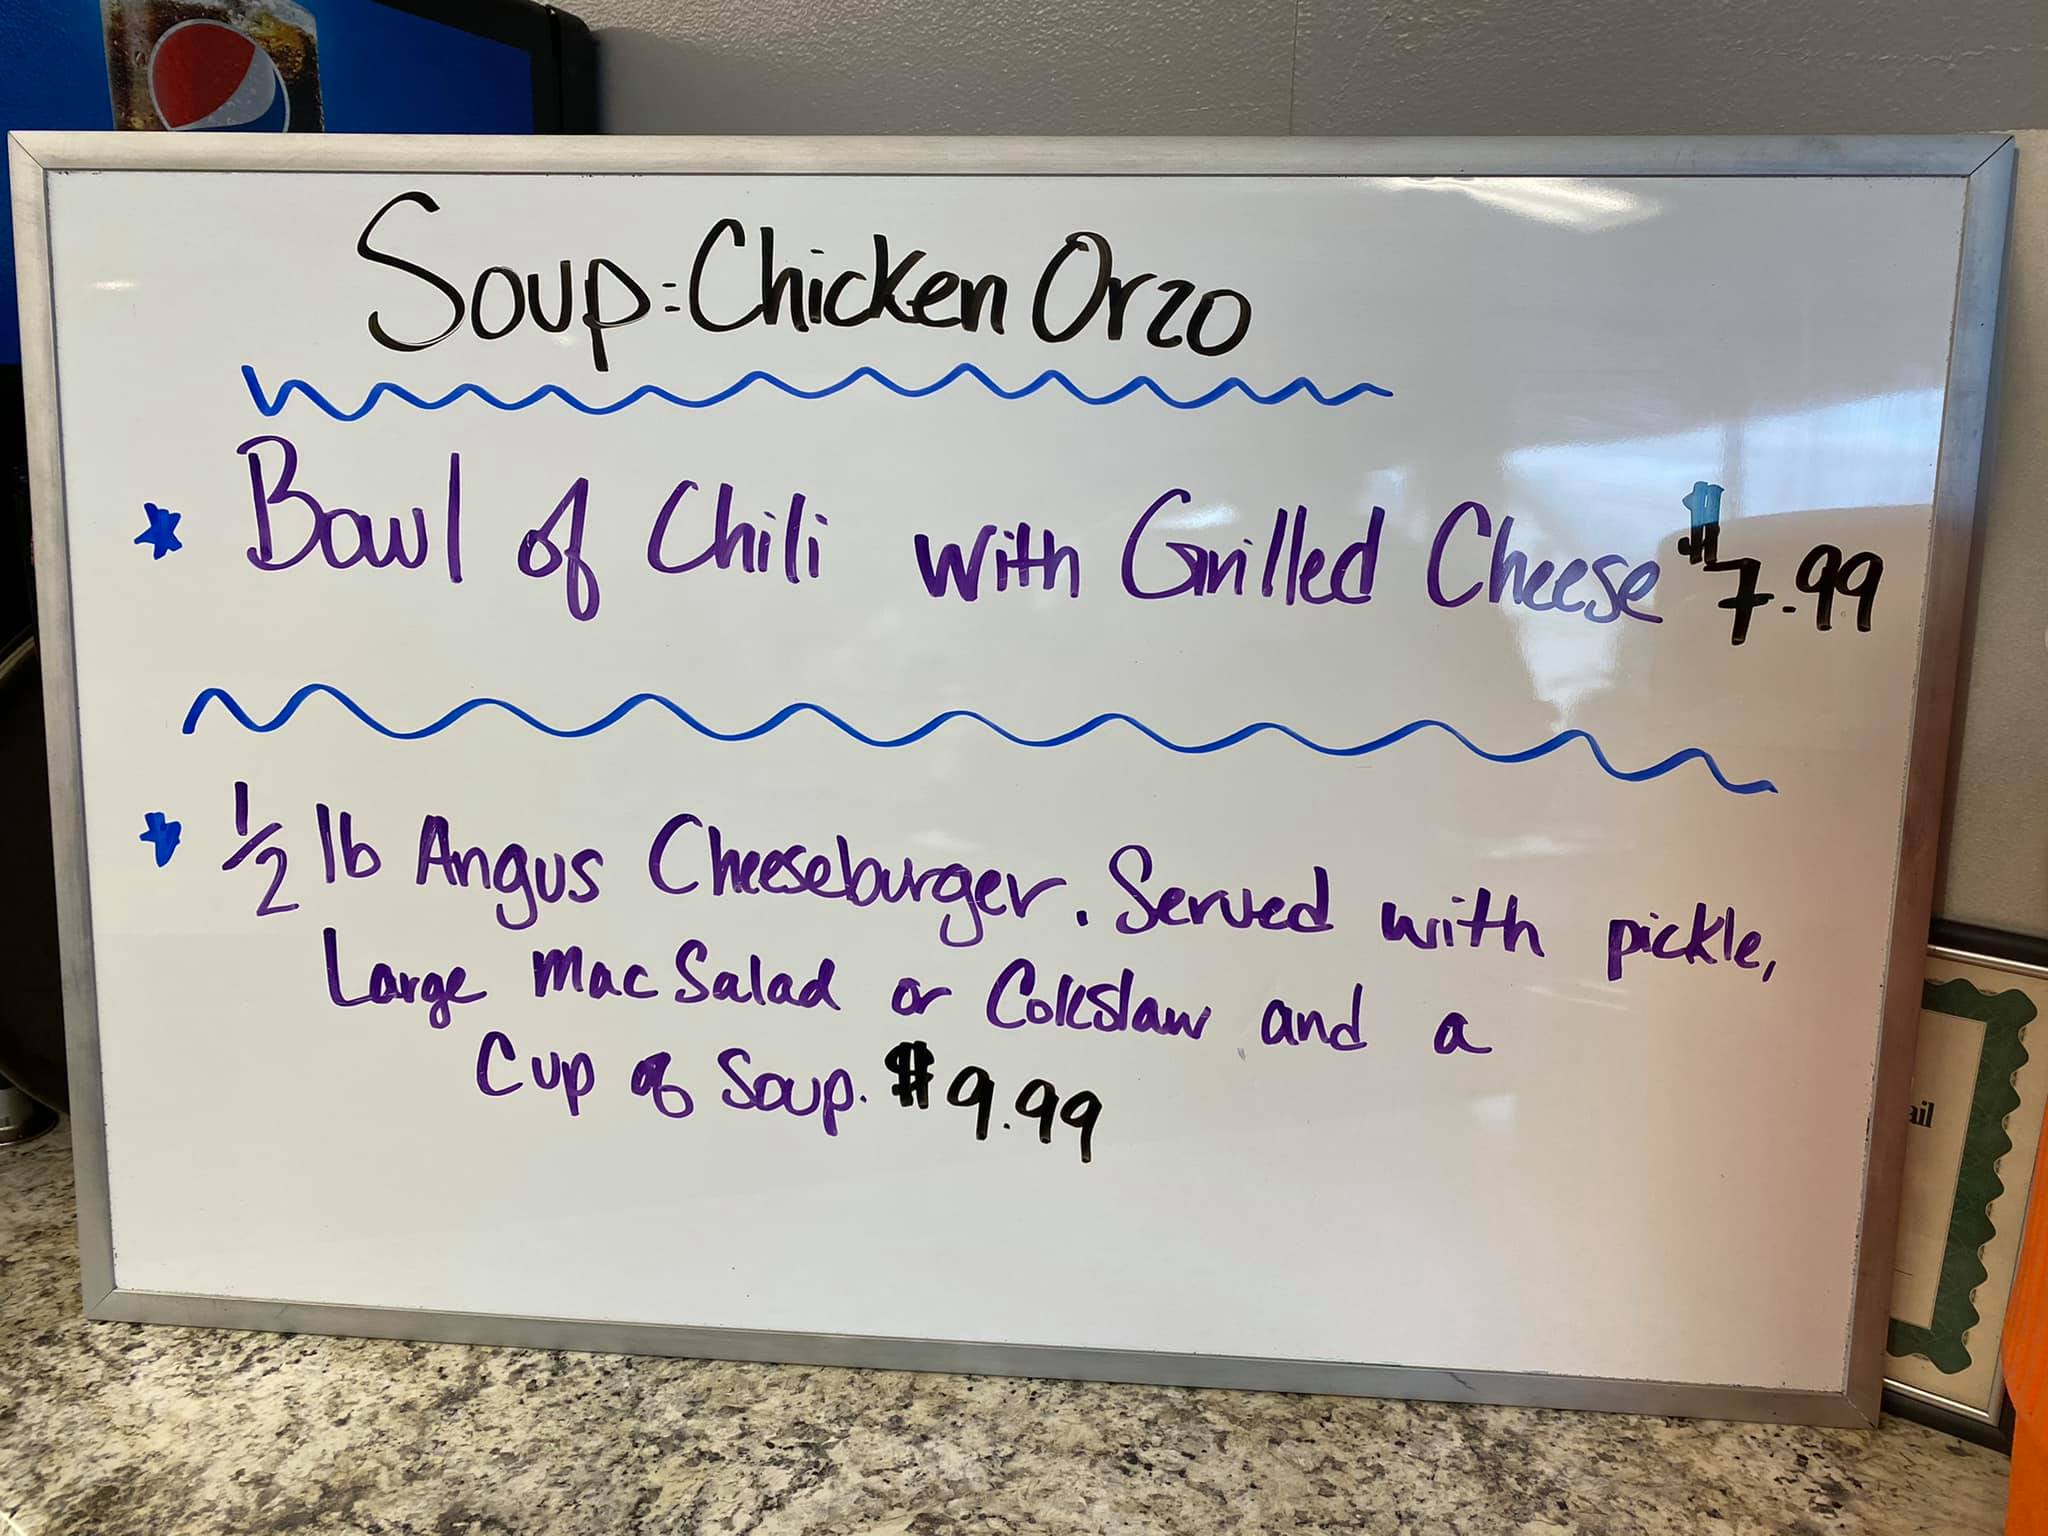 Soup: Chicken Orzo
Bowl of Chili with Grilled Cheese $7.99
1/2 lb Angus Cheeseburger. Served with pickle,
Large Mac Salad or Coleslaw and a
Cup of Soup. $9.99
ail